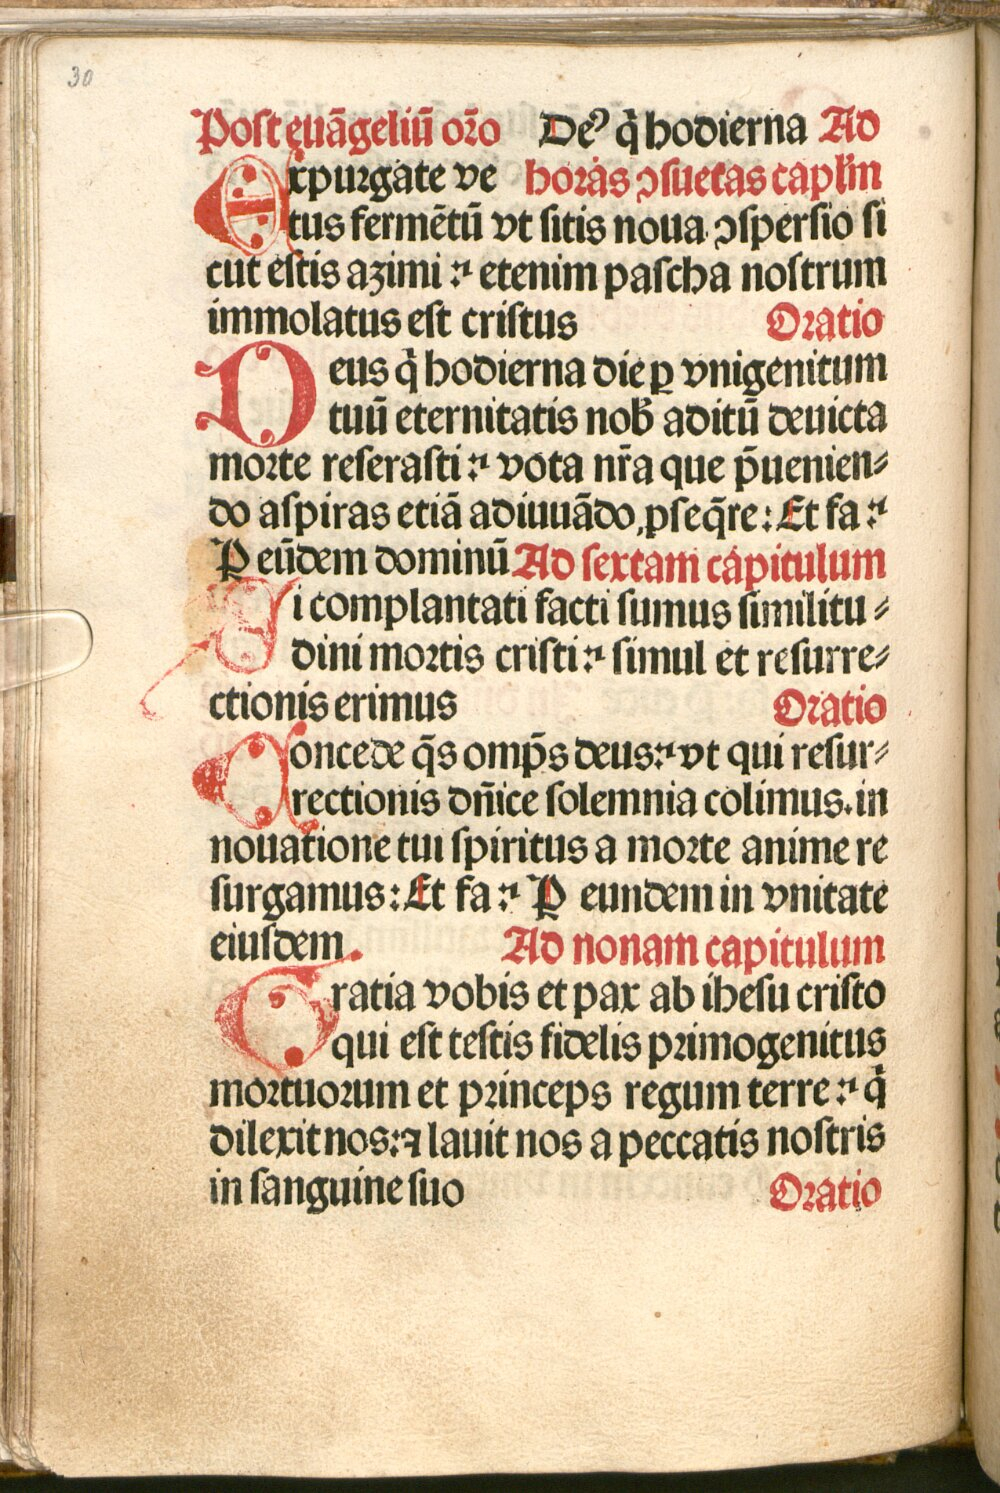 30
Post euāgeliū or̄o Deꝰ q̇ hodierna Ad
Expurgate ve horas ꝯsuetas caplm̄
tus fermētū vt sitis noua ꝯspersio si
cut estis azimi : etenim pascha nostrum
immolatus est cristus Oratio
Deus q̇ hodierna die ꝑ vnigenitum
tuū eternitatis nob̄ aditū deuicta
morte reserasti : vota nr̄a que p̄uenien⸗
do aspiras etiā adiuuādo ꝓseq̄re : Et fa :
P eūdem dominū Ad sextam capitulum
Si complantati facti sumus similitu⸗
dini mortis cristi : simul et resurre⸗
ctionis erimus Oratio
Concede q̄s omp̄s deus : vt qui resur⸗
rectionis dn̄ice solemnia colimus . in
nouatione tui spiritus a morte anime re
surgamus : Et fa : P eundem in vnitate
eiusdem . Ad nonam capitulum
Gratia vobis et pax ab ihesu cristo
qui est testis fidelis primogenitus
mortuorum et princeps regum terre : q̇
dilexit nos : ⁊ lauit nos a peccatis nostris
in sanguine suo Oratio